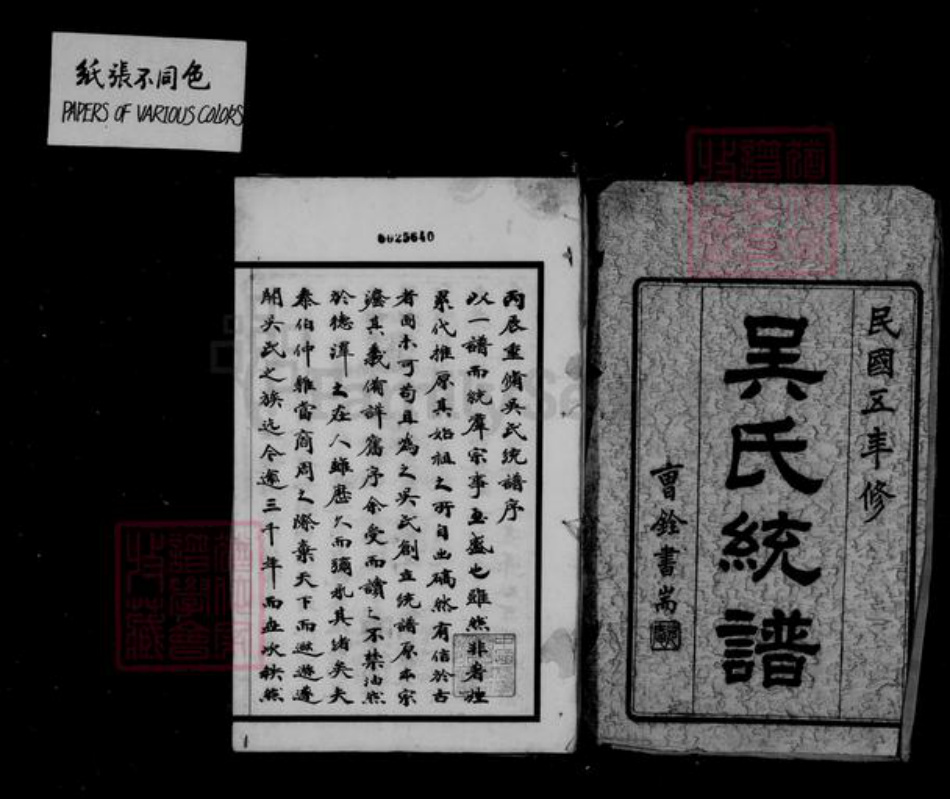 紙張不同色
PAPERS OF VARIOUS COLORS
民國五年修
吳氏統譜
曹銓書耑
6025640
丙辰重脩吳氏統譜序
以一譜而統羣宗事至盛也雖然非考世
累代推原其始祖之所自出礭然有信於古
者固未可苟且為之吳氏創立統譜原本宗
濂其義備詳舊序余受而讀之不禁油然
於德澤之在人雖歷久而彌永其緒矣夫
泰伯仲雍當商周之際棄天下而遯遊遂
開吳氏之族迄今逾三千年而